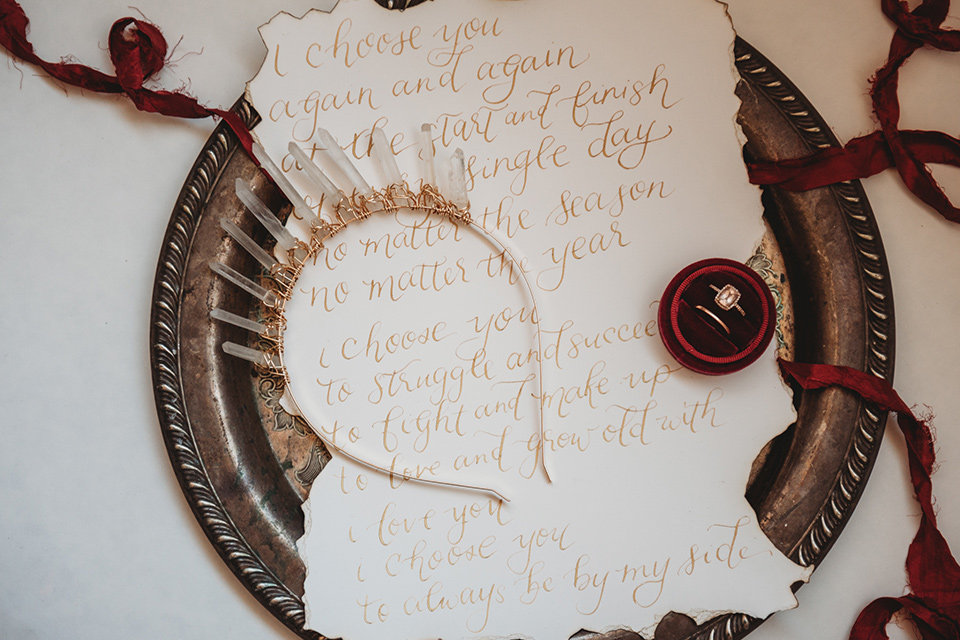 i choose you
again and again
at the start and finish
single day
no matter the season
no matter the year
i choose you
to struggle and succeed
to fight and make up
to love and grow old with
i love you
i choose you
to always be by my side.